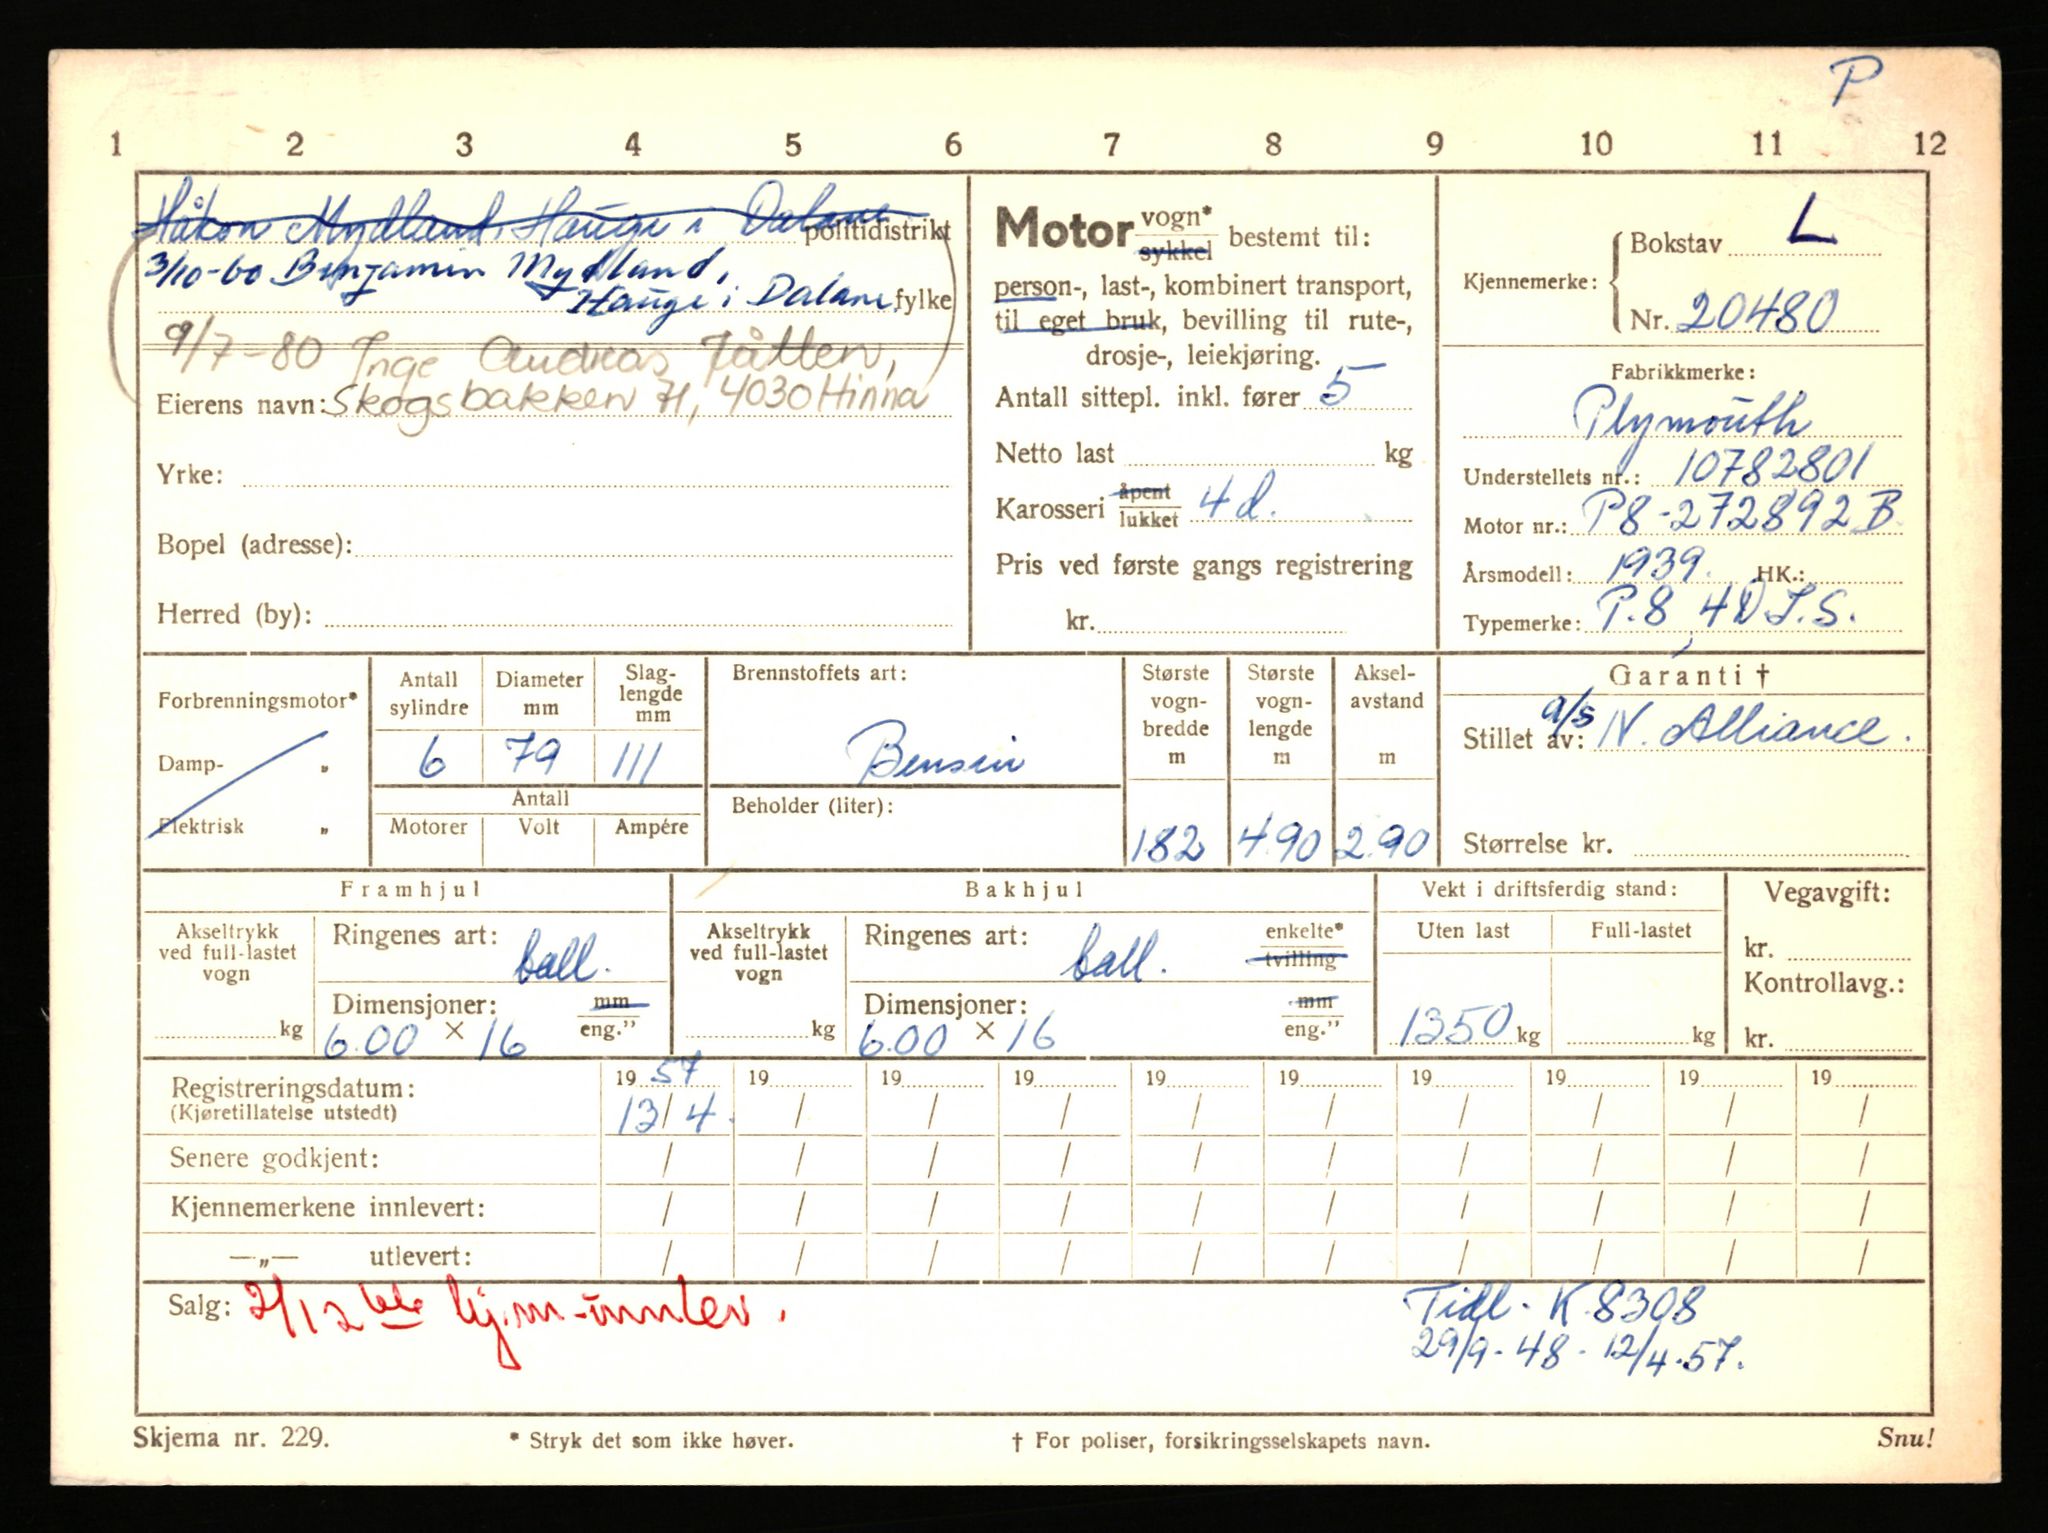 P
1 2 3 4 5 6 7 8 9 10 11 12
Håkon Mydland, Hauge i Dalane politidistrikt
3/10-60 Benjamin Mydland,
Hauge i Dalane fylke
9/7-80 Inge Andreas Jåtten,
Eierens navn: Skogsbakken 71, 4030 Hinna
Yrke:
Bopel (adresse):
Herred (by):
Motor vogn* sykkel bestemt til:
person-, last-, kombinert transport,
til eget bruk, bevilling til rute-,
drosje-, leiekjøring.
Antall sittepl. inkl. fører 5
Netto last kg
Karosseri åpent lukket 4 d.
Pris ved første gangs registrering
kr.
Kjennemerke: Bokstav L
Nr. 20480
Fabrikkmerke:
Plymouth
Understellets nr.: 10782801
Motor nr.: P8-272892 B
Årsmodell: 1939. HK.:
Typemerke: P.8, 4D T.S.
Forbrenningsmotor*
Damp- „
Elektrisk „
Antall sylindre
Diameter mm
Slag-lengde mm
6 79 111
Antall
Motorer Volt Ampére
Brennstoffets art:
Bensin
Beholder (liter):
Største vogn-bredde m
Største vogn-lengde m
Aksel-avstand m
182 4.90 2.90
Garanti †
Stillet av: a/s N. Alliance.
Størrelse kr.
Framhjul
Akseltrykk ved full-lastet vogn
kg
Ringenes art: ball.
Dimensjoner: mm
6.00 × 16 eng.”
Bakhjul
Akseltrykk ved full-lastet vogn
kg
Ringenes art: ball. enkelte* tvilling
Dimensjoner: mm
6.00 × 16 eng.”
Vekt i driftsferdig stand:
Uten last Full-lastet
1350 kg kg
Vegavgift:
kr.
Kontrollavg.:
kr.
Registreringsdatum: 19 57 19 19 19 19 19 19 19 19 19
(Kjøretillatelse utstedt) 13/4. / / / / / / / / /
Senere godkjent: / / / / / / / / / /
Kjennemerkene innlevert: / / / / / / / / / /
—„— utlevert: / / / / / / / / / /
Salg: 2/12 kj.m-innlev.
Tidl. K.8308
29/9-48 - 12/4.57.
Skjema nr. 229. * Stryk det som ikke høver. † For poliser, forsikringsselskapets navn. Snu!